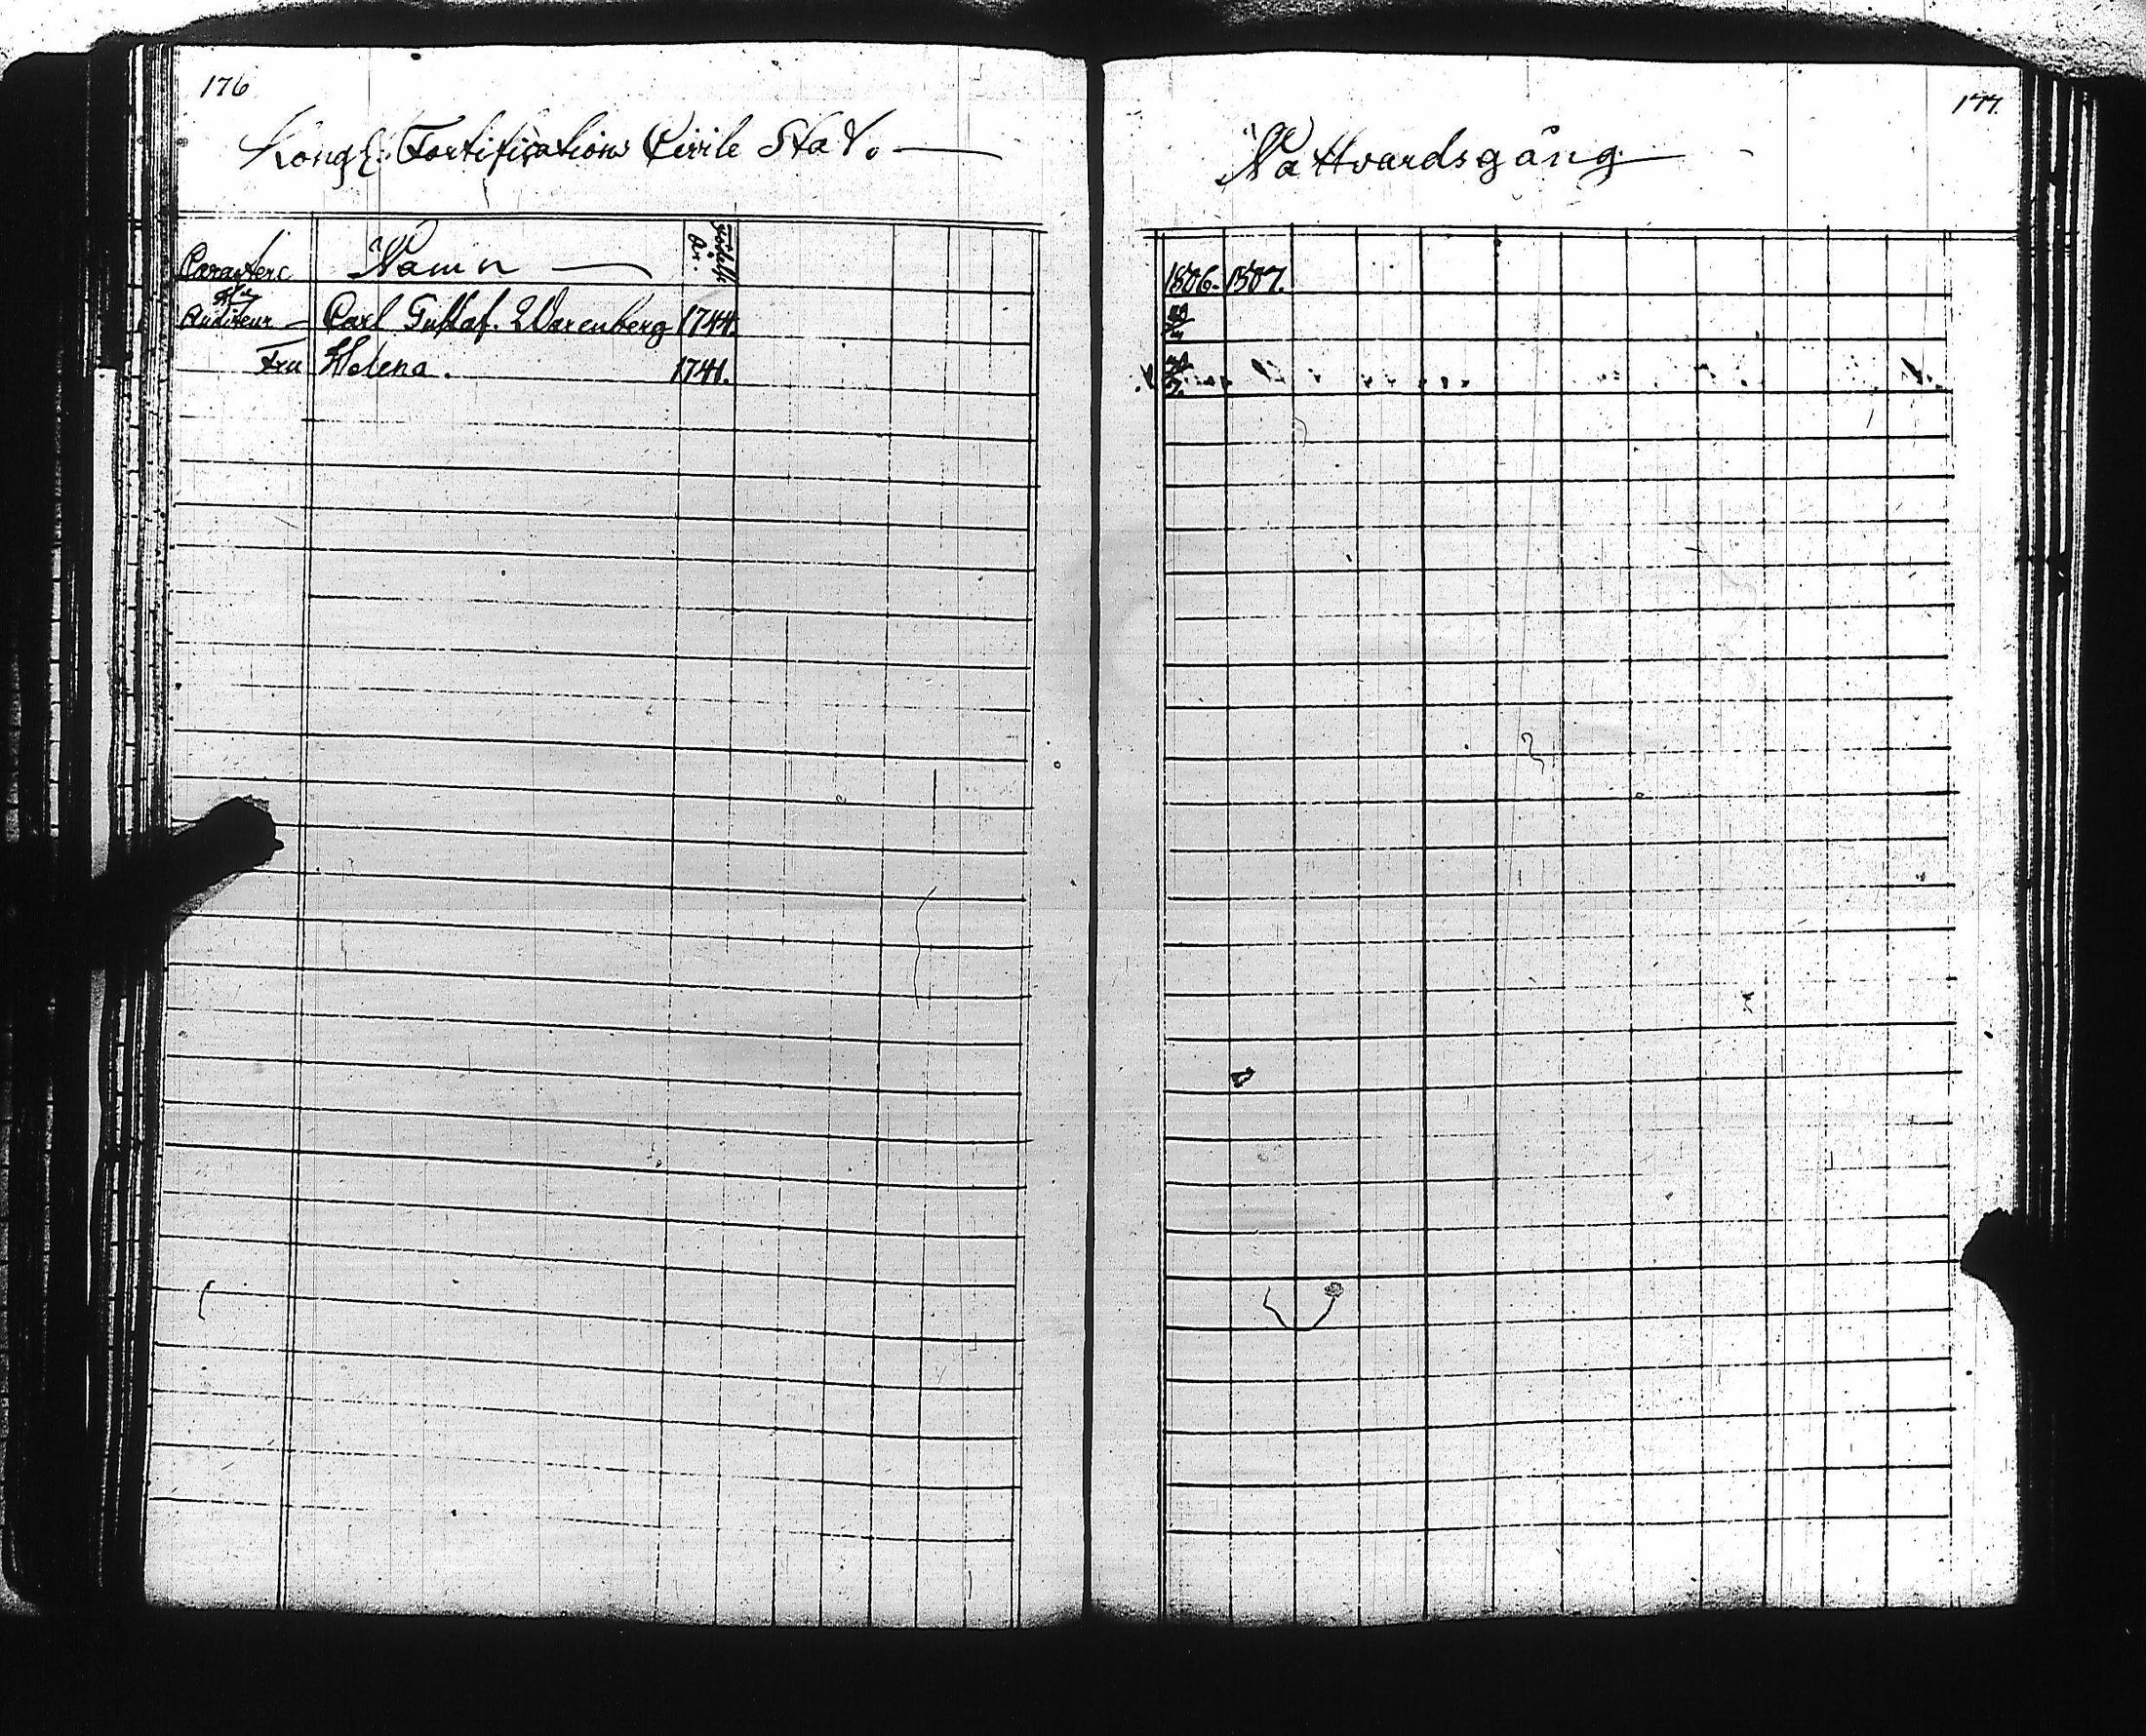 176
Kongl: Fortifications Civile Stat.
Caractere Namn Födelse År.
Auditeur Carl Gustaf Warenberg 1744.
Fru Helena. 1741.
177.
Nattvardsgång
1806. 1807.